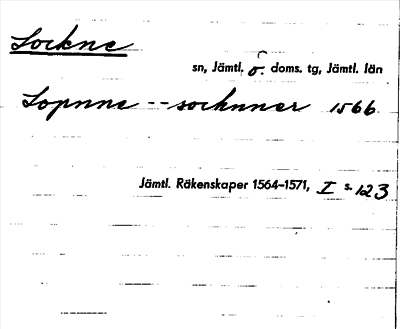 Lockne
sn, Jämtl. ö. doms. tg, Jämtl. län
Lopnne -- socknner 1566
Jämtl. Räkenskaper 1564-1571, I s. 123